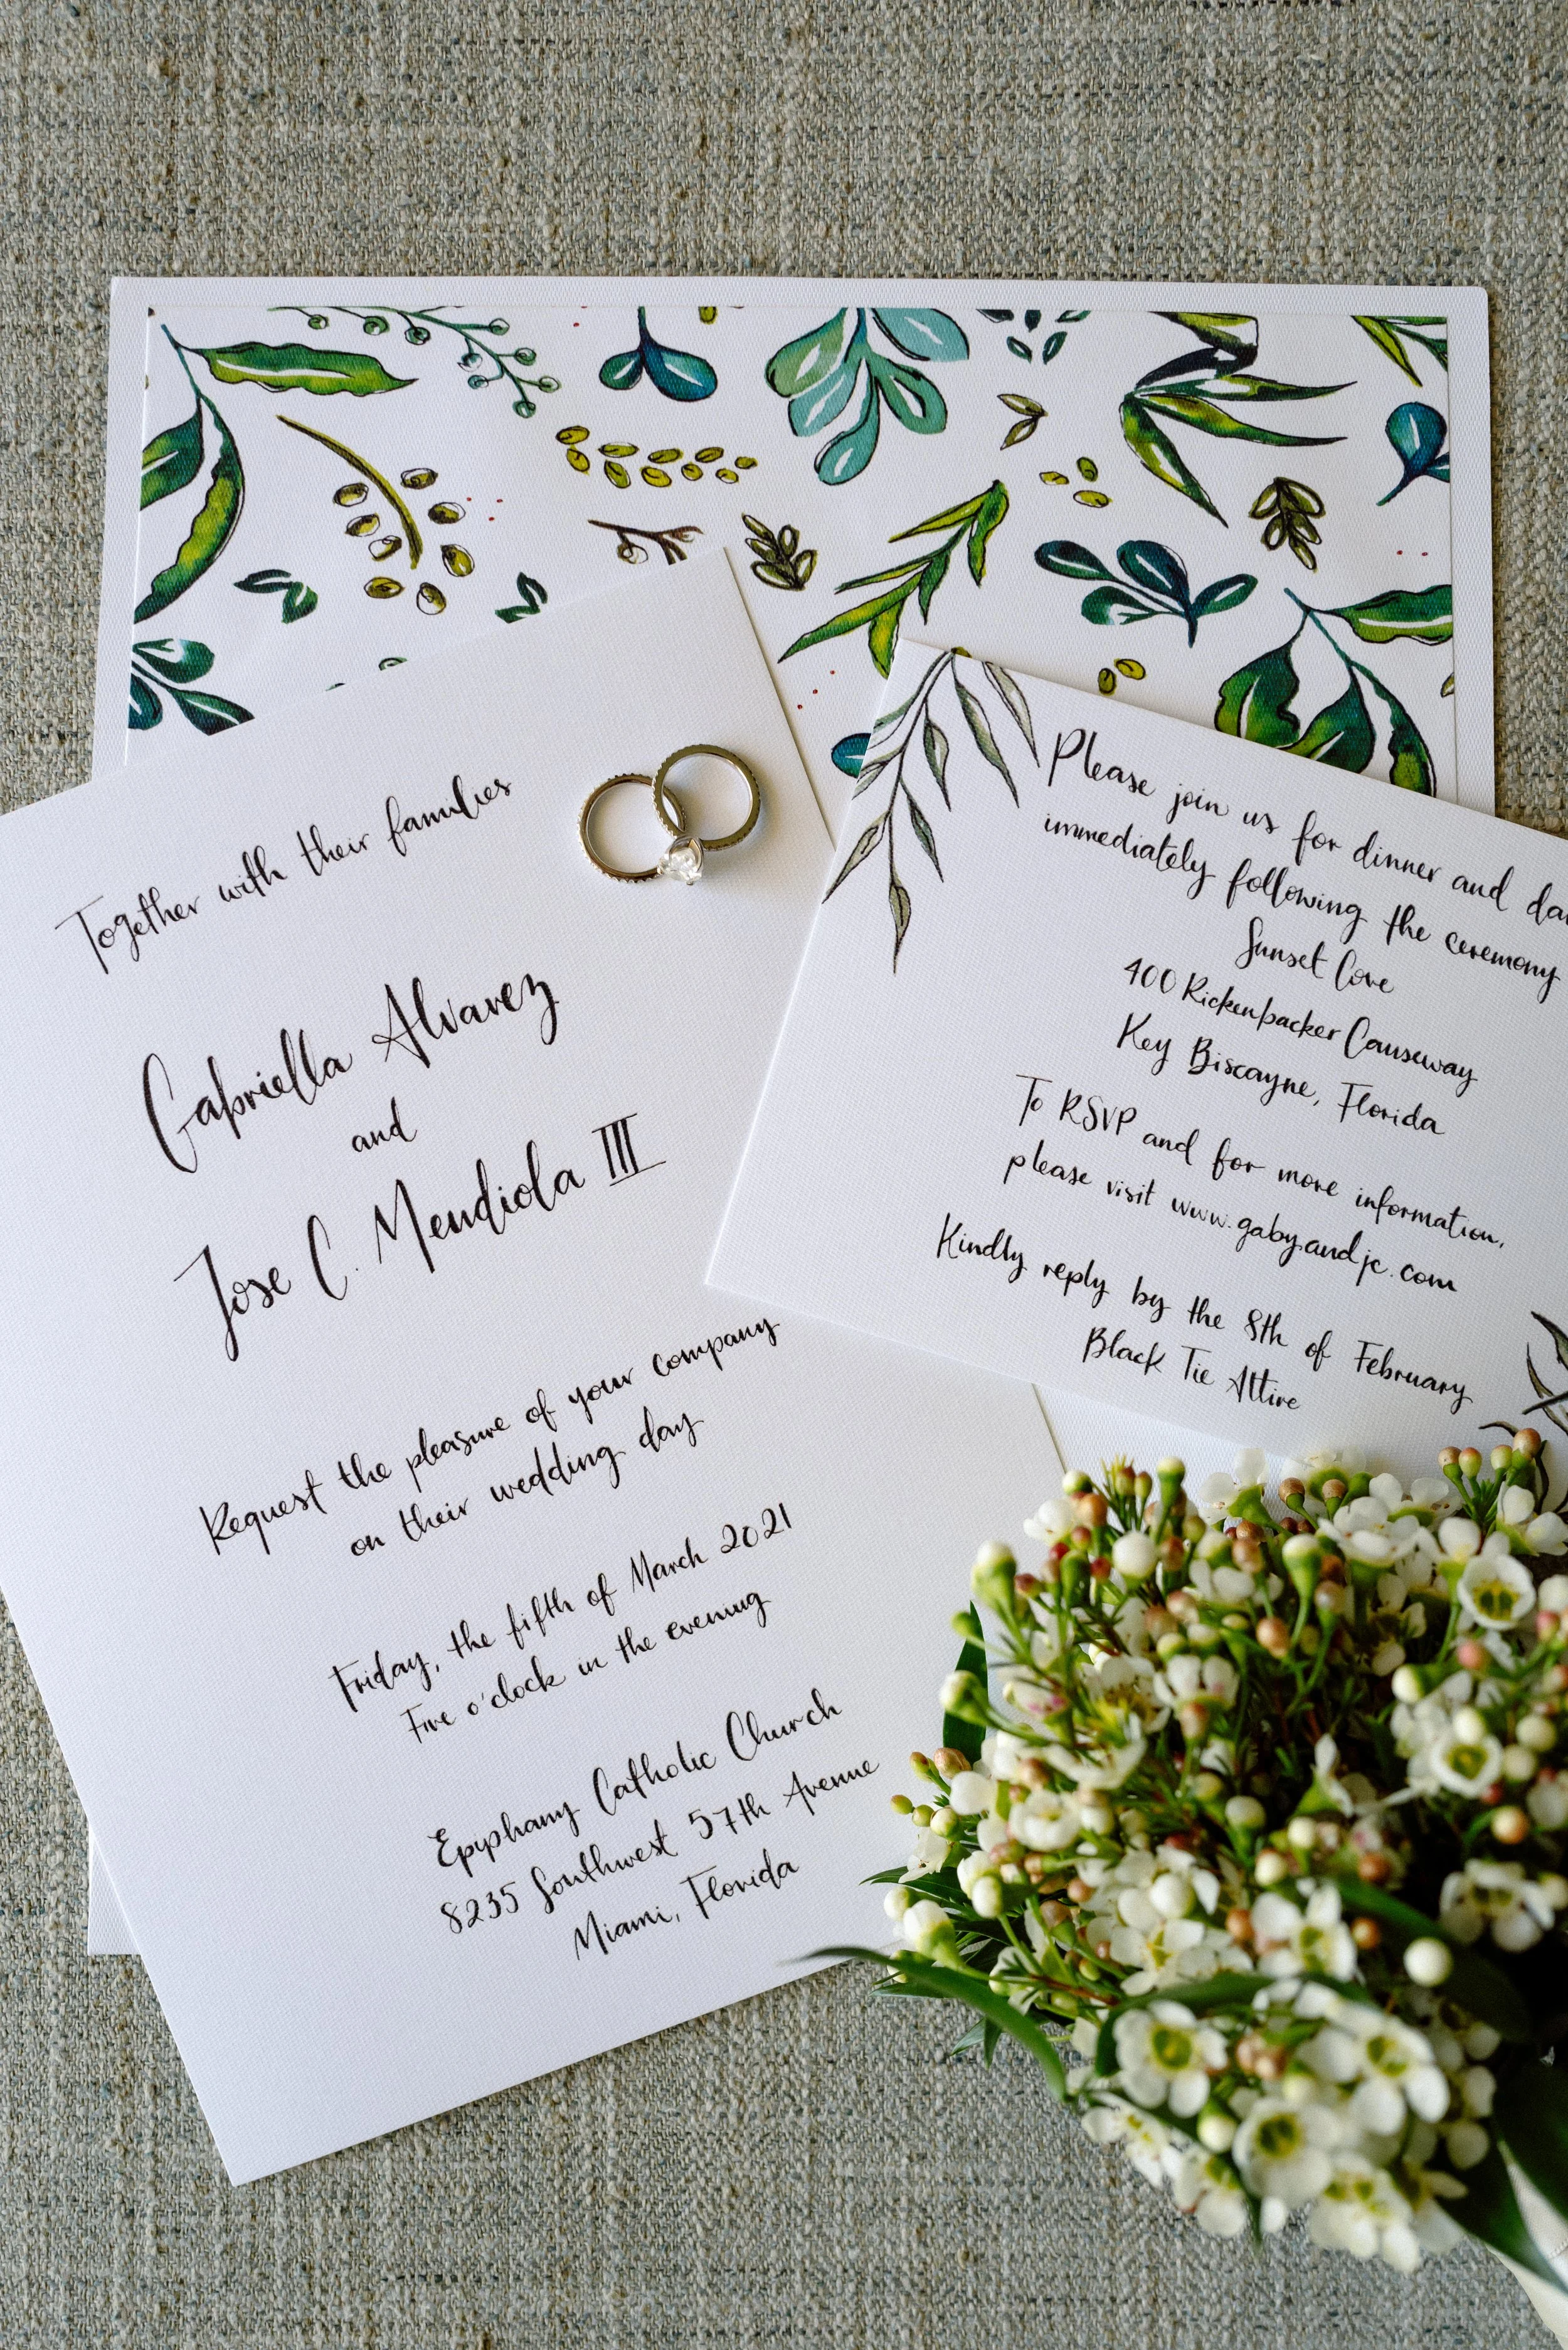 Together with their families
Gabriella Alvarez
and
Jose C. Mendiola III
Request the pleasure of your company
on their wedding day
Friday, the fifth of March 2021
Five o'clock in the evening
Epiphany Catholic Church
8235 Southwest 57th Avenue
Miami, Florida
Please join us for dinner and
immediately following the ceremony
Sunset Cove
400 Rickenbacker Causeway
Key Biscayne, Florida
To RSVP and for more information,
please visit www.gabyandjc.com
Kindly reply by the 8th of February
Black Tie Attire